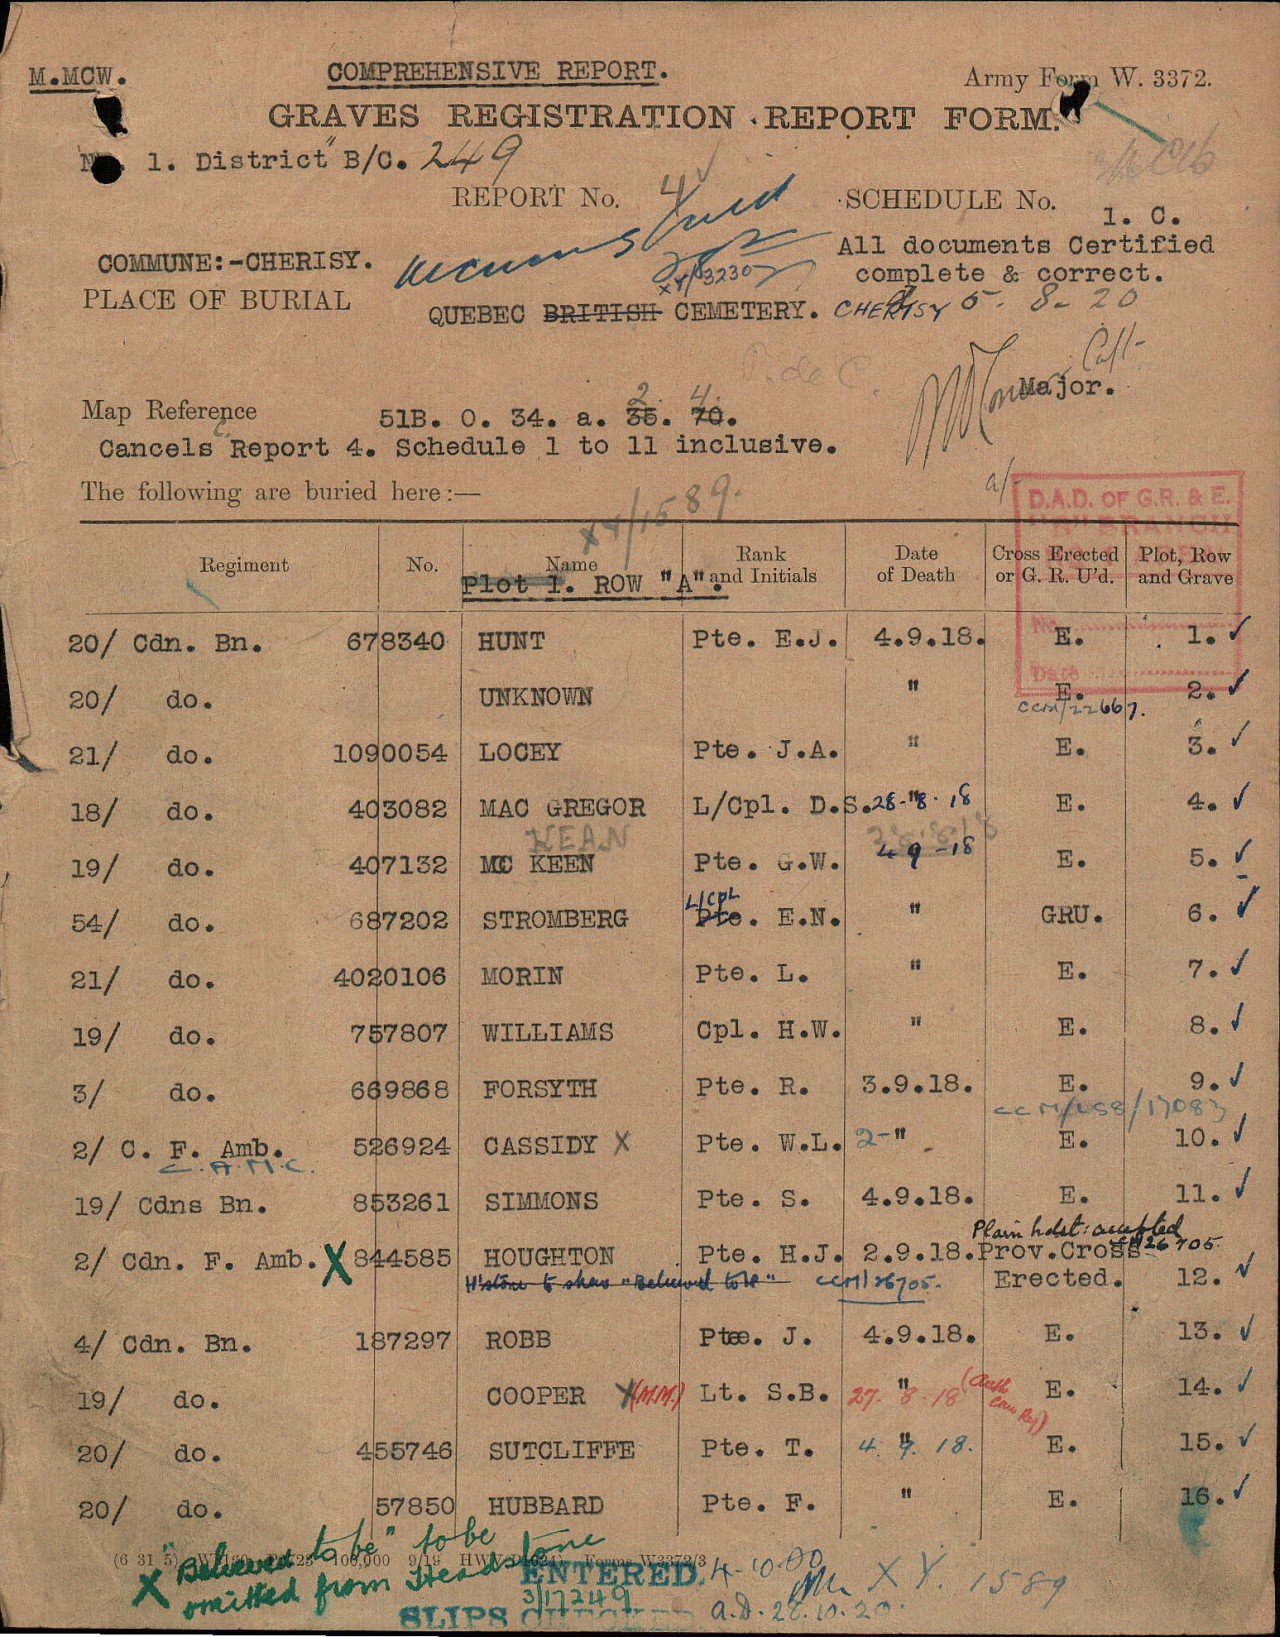 M.MCW.
COMPREHENSIVE REPORT.
Army Form W. 3372.
GRAVES REGISTRATION REPORT FORM.
1. District B/C. 249
REPORT No. 4
SCHEDULE No. 1. C.
All documents Certified
complete & correct.
COMMUNE:-CHERISY.
XY/3230
PLACE OF BURIAL
QUEBEC BRITISH CEMETERY. CHERISY 5-8-20
P. de C.
Capt.
Major.
2. 4.
Map Reference 51B. O. 34. a. 35. 70.
Cancels Report 4. Schedule 1 to 11 inclusive.
The following are buried here:—
XY/1589.
D.A.D. OF G.R. & E.
BRANCH
No.
Date
Regiment No. Name Rank and Initials Date of Death Cross Erected or G. R. U'd. Plot, Row and Grave
Plot 1. ROW "A".
20/ Cdn. Bn. 678340 HUNT Pte. E.J. 4.9.18. E. 1. ✓
20/ do. UNKNOWN " E. 2. ✓
CCM/22667.
21/ do. 1090054 LOCEY Pte. J.A. " E. 3. ✓
18/ do. 403082 MAC GREGOR L/Cpl. D.S. 28-"8-18 E. 4. ✓
KEAN 28.8.18
19/ do. 407132 MC KEEN Pte. G.W. 4 9 -18 E. 5. ✓
L/Cpl
54/ do. 687202 STROMBERG Pte. E.N. " GRU. 6. ✓
21/ do. 4020106 MORIN Pte. L. " E. 7. ✓
19/ do. 757807 WILLIAMS Cpl. H.W. " E. 8. ✓
3/ do. 669868 FORSYTH Pte. R. 3.9.18. E. 9. ✓
2/ C. F. Amb. 526924 CASSIDY X Pte. W.L. 2-" E. 10. ✓
C.A.M.C.
19/ Cdns Bn. 853261 SIMMONS Pte. S. 4.9.18. E. 11. ✓
Plain hdst: accepted
26705.
2/ Cdn. F. Amb. X 844585 HOUGHTON Pte. H.J. 2.9.18. Prov.Cross
H'stone to show "Believed to be" CCM/26705. Erected. 12. ✓
4/ Cdn. Bn. 187297 ROBB Pte. J. 4.9.18. E. 13. ✓
19/ do. COOPER X (M.M.) Lt. S.B. 27. "8-18 E. 14. ✓
20/ do. 455746 SUTCLIFFE Pte. T. 4. "9. 18. E. 15. ✓
20/ do. 57850 HUBBARD Pte. F. " E. 16. ✓
X "Believed to be" to be
omitted from Headstone
100,000 9/19 Forms W3372/3
ENTERED. 4-10-20
3/17249 XY. 1589
SLIPS CHECKED a.D. 28.10.20.